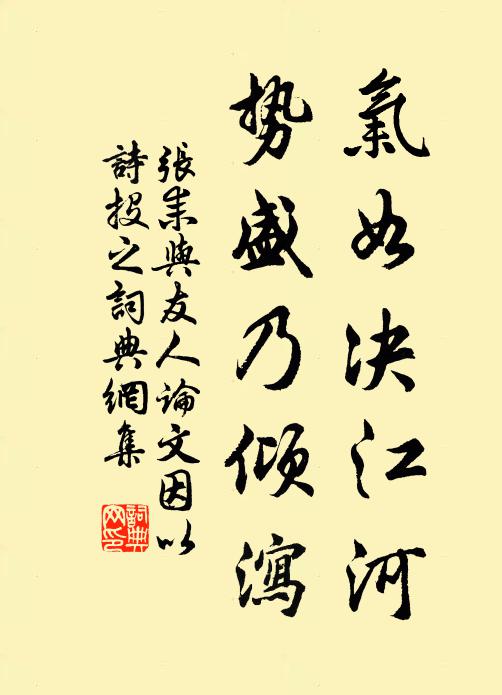 氣如決江河
勢盛乃傾瀉
張耒與友人論文因以
詩投之詞典網集
詞典
网印